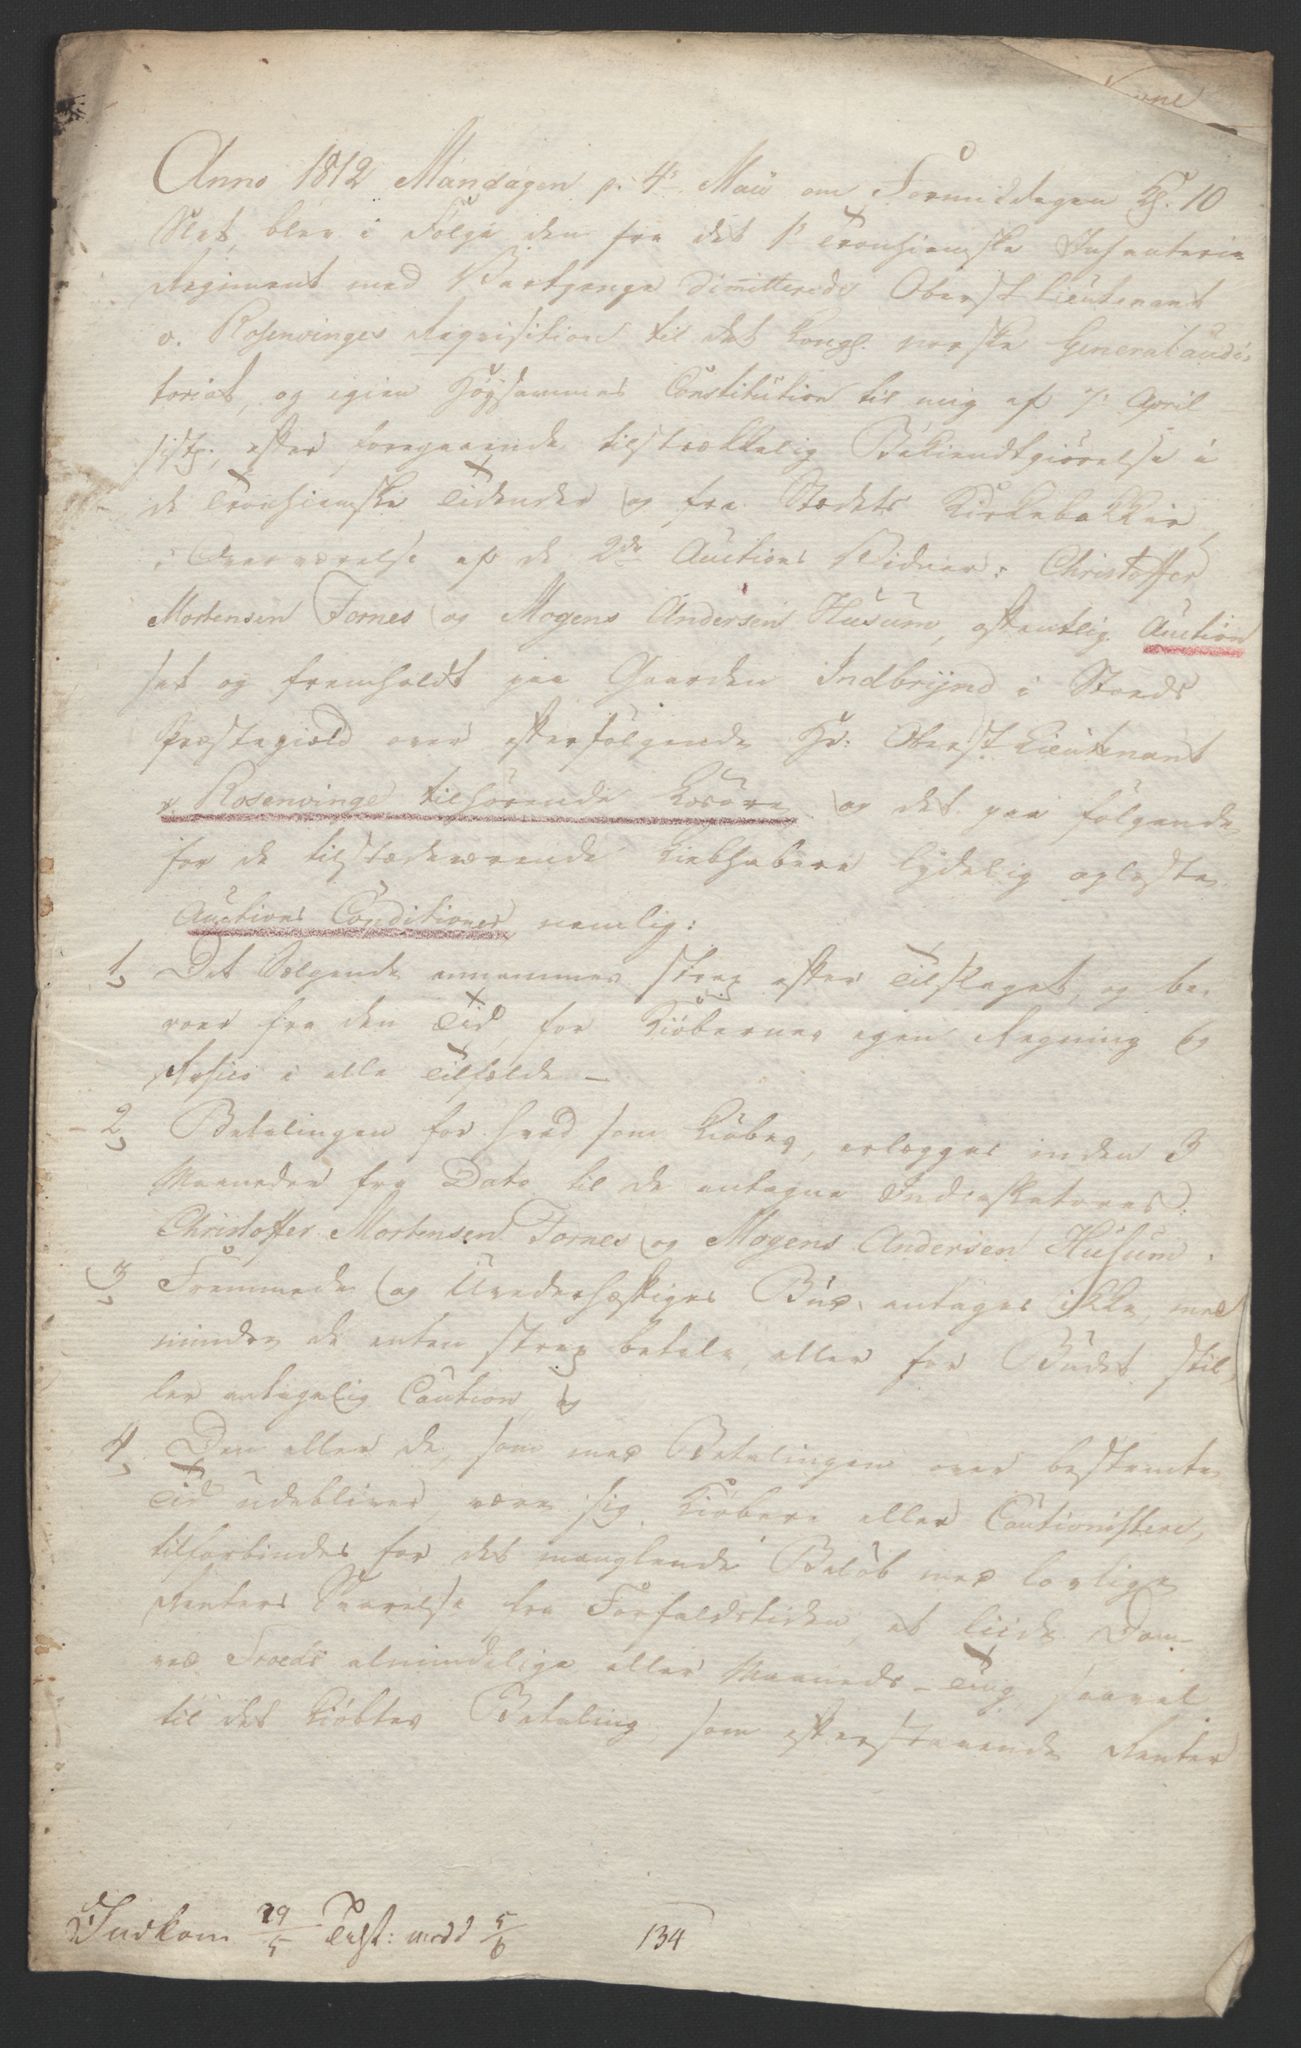 Anno 1812 Mandagen d. 4de Maii om Formiddagen Kl. 10
Slet, blev i Følge den fra det 1ste Tronhiemske Infanterie
Regiment med Vartpenge dimitterede Oberst Lieutenant
v. Rosenvinges Requisition til det Kongl. norske Generalaudi-
toriat, og igien Høysammes Constitution til mig af 7de April
sidstl, efter foregaaende tilstrækkelig Bekiendtgiørelse i
de Tronhiemske Tidender og fra Stædets Kirkebakker
i Overværelse af de 2de Auctions Vidner: Christoffer
Mortensen Fornes og Mogens Andersen Husum, offentlig Auction
sat og fremholdt paa Gaarden Indbrynd i Stoeds
Præstegield over efterfølgende Hr: Oberst Lieutenant
v. Rosenvinge tilhørende Løsøre og det paa følgende
for de tilstædeværende Liebhabere lydelig oplæste
Auctions Conditioner nemlig:
1, Det Sælgende annammes strax efter Tilslaget, og be-
roer fra den Tid, for Kiøbernes egen Regning og
Risico i alle Tilfælde –
2, Betalingen for hvad som kiøbes, erlægges inden 3
Maaneder fra Dato til de antagne Indcasatores.
Christoffer Mortensen Fornes og Mogens Andersen Husum.
3, Fremmede og Uvederhæftiges Bud, antages ikke, med
mindre de enten strax betale, eller for Budet stil-
ler antagelig Caution, og
4, Den eller de, som med Betalingen over bestemte
Tid udebliver være sig Kiøbere eller Cautionistere,
tilforbindes for det manglende Beløb med lovlige
Renters Svarelse fra Forfaldstiden, at liide Dom
ved Stoeds almindelige eller Maaneds-Ting, saavel
til det kiøbtes Betaling, som efterstaaende Renter
Indkom 29/5 Tilst: medd 5/6 134